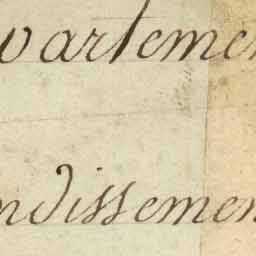 partemen
ndissemen